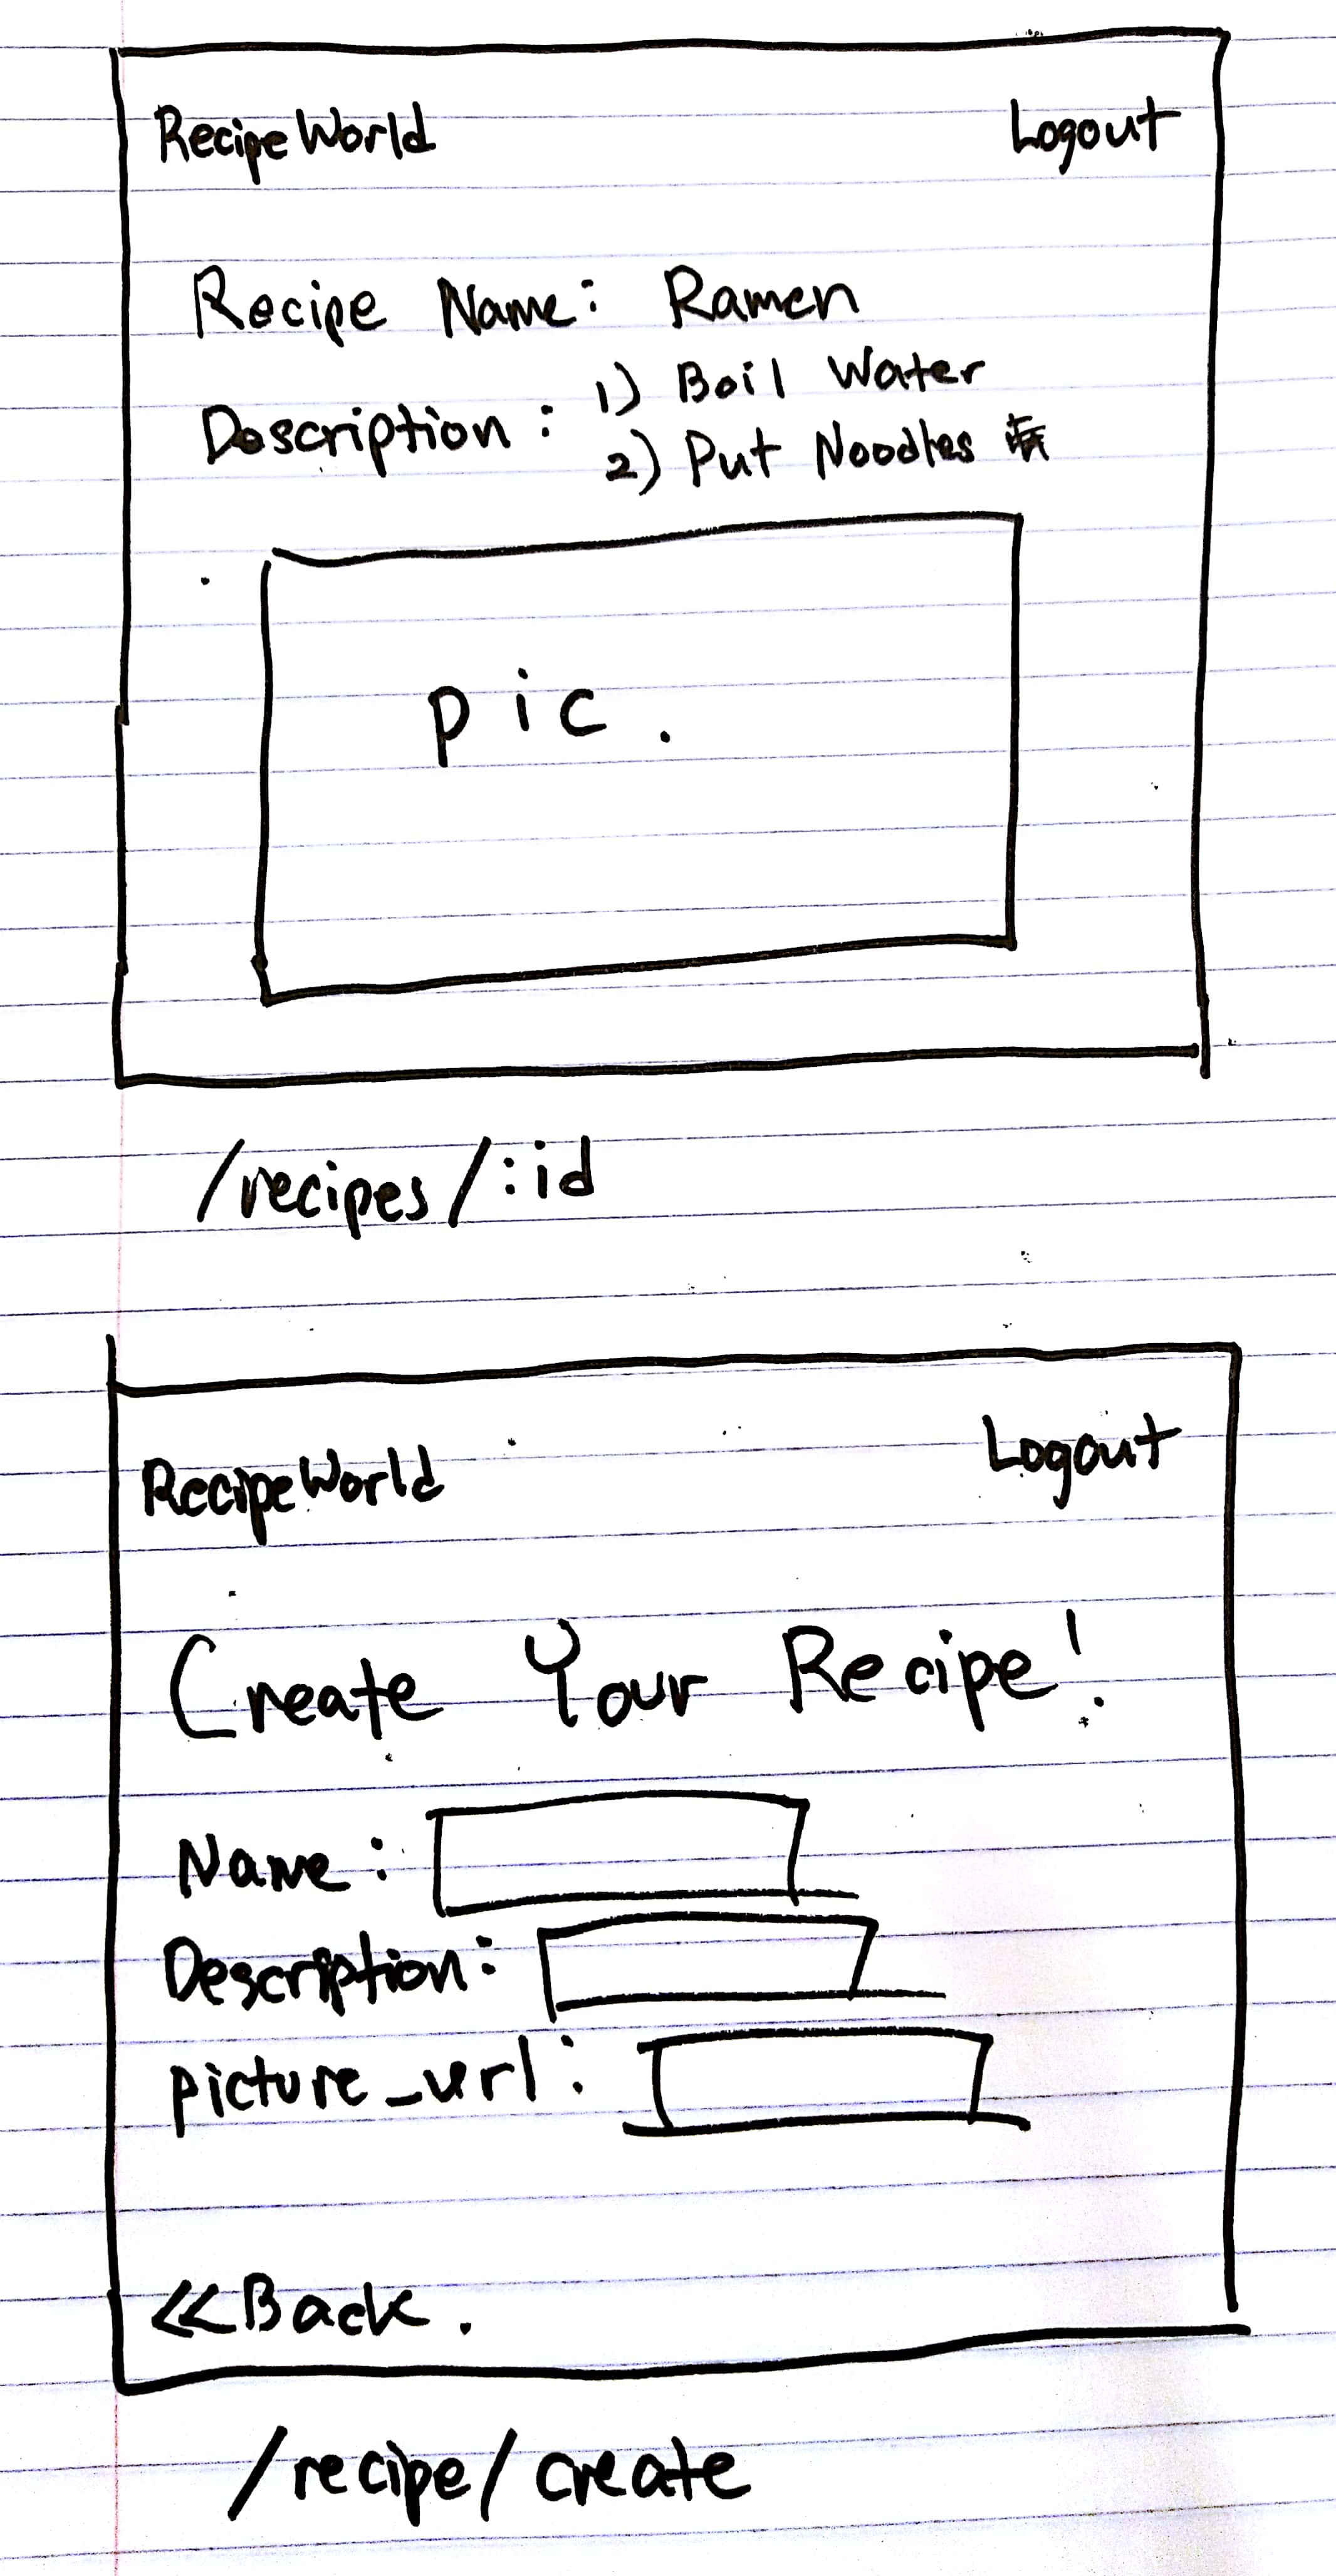 RecipeWorld Logout
Recipe Name: Ramen
Description: 1) Boil Water
2) Put Noodles
pic.
/recipes/:id
RecipeWorld Logout
Create Your Recipe!
Name:
Description:
picture_url:
<<Back.
/recipe/create